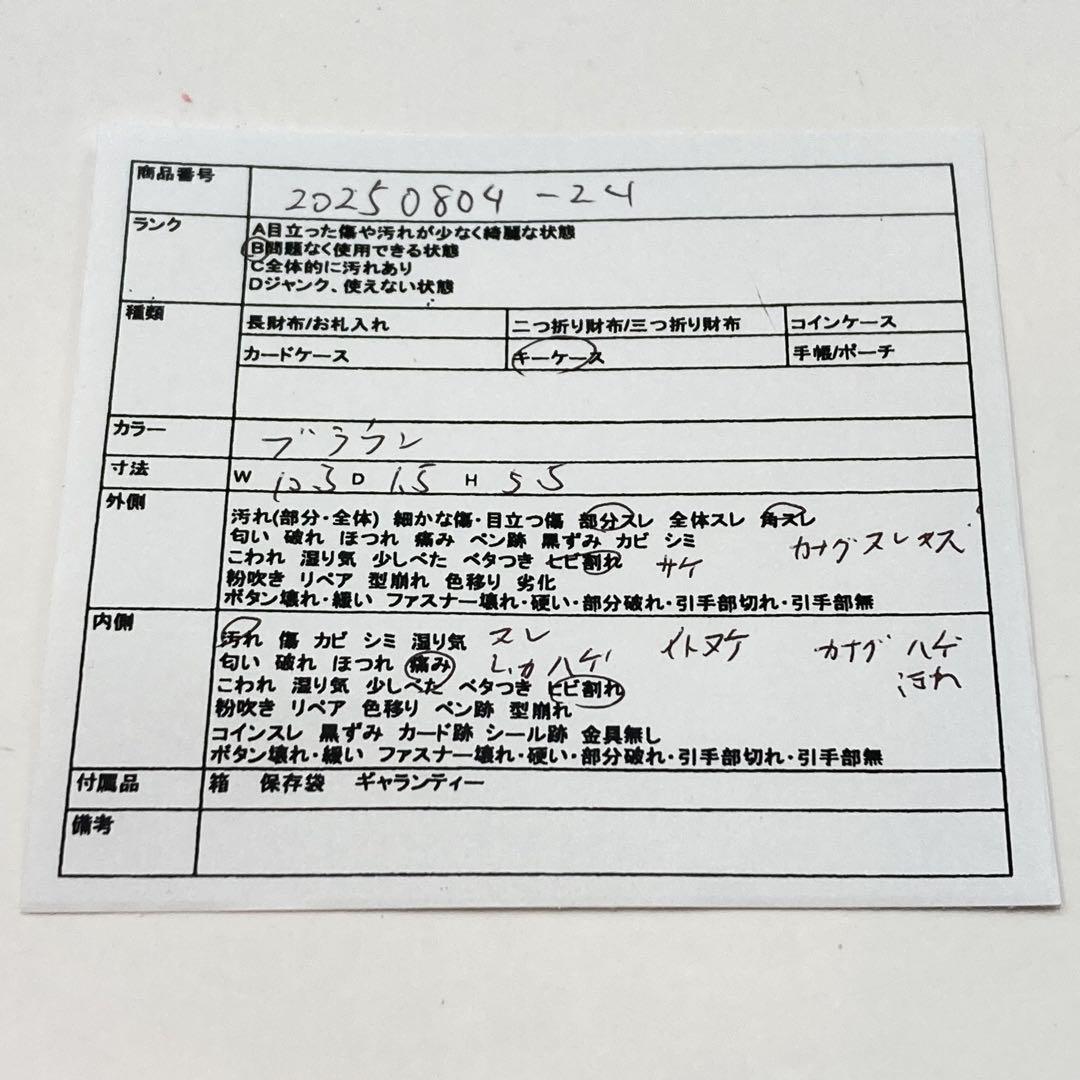 商品番号 20250804-24
ランク A目立った傷や汚れが少なく綺麗な状態
B問題なく使用できる状態
C全体的に汚れあり
Dジャンク、使えない状態
種類 長財布/お札入れ 二つ折り財布/三つ折り財布 コインケース
カードケース キーケース 手帳/ポーチ
カラー ブラウン
寸法 W D 1.5 H 5.5
外側 汚れ(部分・全体) 細かな傷・目立つ傷 部分スレ 全体スレ 角スレ
匂い 破れ ほつれ 痛み ペン跡 黒ずみ カビ シミ カナグスレ
こわれ 湿り気 少しべた ベタつき ヒビ割れ サケ
粉吹き リペア 型崩れ 色移り 劣化
ボタン壊れ・緩い ファスナー壊れ・硬い・部分破れ・引手部切れ・引手部無
内側 汚れ 傷 カビ シミ 湿り気 スレ イトヌケ カナグ ハゲ
匂い 破れ ほつれ 痛み ハゲ 汚れ
こわれ 湿り気 少しべた ベタつき ヒビ割れ
粉吹き リペア 色移り ペン跡 型崩れ
コインスレ 黒ずみ カード跡 シール跡 金具無し
ボタン壊れ・緩い ファスナー壊れ・硬い・部分破れ・引手部切れ・引手部無
付属品 箱 保存袋 ギャランティー
備考